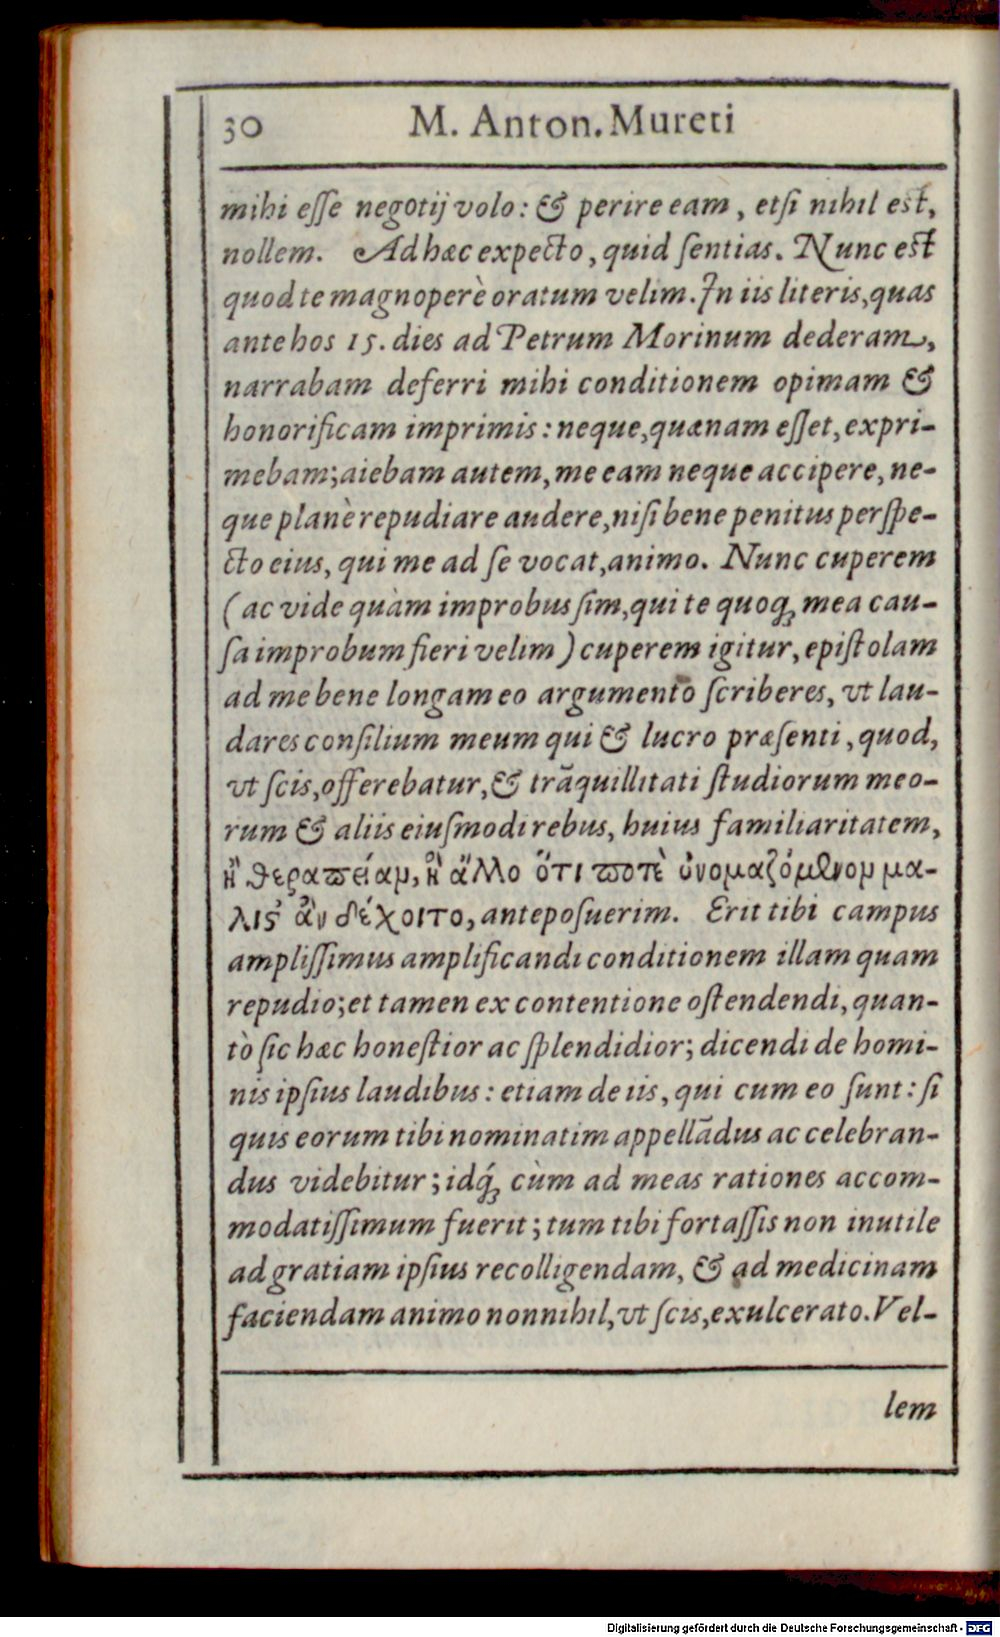 30 M. Anton. Mureti
mihi eſſe negotij volo: & perire eam, etſi nihil est,
nollem. Ad hæc expecto, quid ſentias. Nunc est
quod te magnoperè oratum velim. In iis literis, quas
ante hos 15. dies ad Petrum Morinum dederam,
narrabam deferri mihi conditionem opimam &
honorificam imprimis: neque, quænam eſſet, expri-
mebam; aiebam autem, me eam neque accipere, ne-
que planè repudiare audere, niſi bene penitus perſpe-
cto eius, qui me ad ſe vocat, animo. Nunc cuperem
(ac vide quàm improbus ſim, qui te quoq; mea cau-
ſa improbum fieri velim) cuperem igitur, epiſtolam
ad me bene longam eo argumento ſcriberes, vt lau-
dares conſilium meum qui & lucro præſenti, quod,
vt ſcis, offerebatur, & trāquillitati ſtudiorum meo-
rum & aliis eiuſmodi rebus, huius familiaritatem,
ἢ θεραπείαμ, ἢ ἄλλο ὅτι ποτὲ ὀνομαζόμενομ μα-
λιϛ' ἂν δέχοιτο, antepoſuerim. Erit tibi campus
ampliſſimus amplificandi conditionem illam quam
repudio; et tamen ex contentione oſtendendi, quan-
tò ſic hæc honeſtior ac ſplendidior; dicendi de homi-
nis ipſius laudibus: etiam de iis, qui cum eo ſunt: ſi
quis eorum tibi nominatim appellādus ac celebran-
dus videbitur; idq́; cùm ad meas rationes accom-
modatiſſimum fuerit; tum tibi fortaſſis non inutile
ad gratiam ipſius recolligendam, & ad medicinam
faciendam animo nonnihil, vt ſcis, exulcerato. Vel-
lem
Digitalisierung gefördert durch die Deutsche Forschungsgemeinschaft - DFG